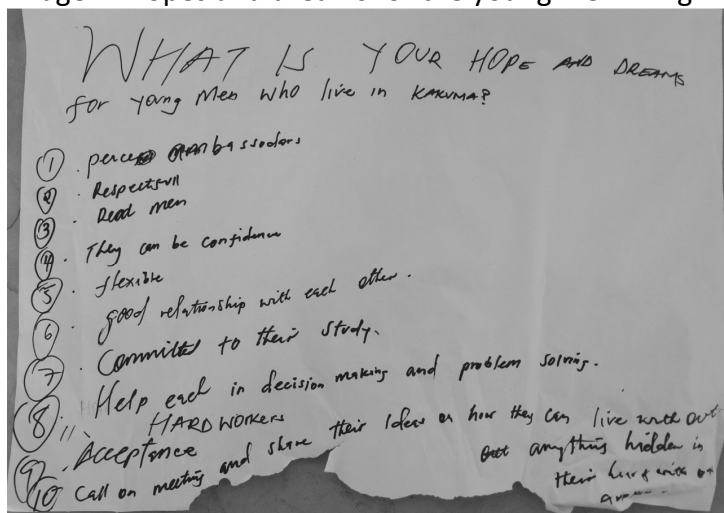 WHAT IS YOUR HOPE AND DREAMS
for young men who live in KAKUMA?
① . ambassadors
② . Respectfull
③ . Read men
④ . They can be confidence
⑤ . flexible
⑥ . good relationship with each other.
⑦ . Committed to their study.
⑧ Help each in decision making and problem solving.
11 HARD WORKERS
⑨ . Acceptance
⑩ Call on meeting and share their Ideas on how they can live with out
anything hidden in
their